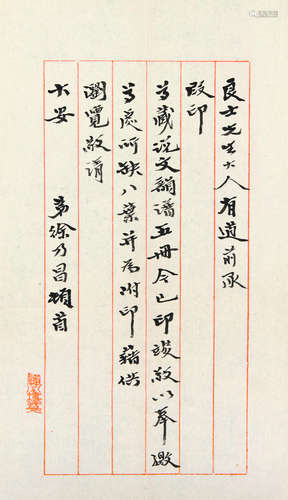 良士先生大人有道前承
改印
尊藏说文韻谱五冊今已印竣敬以奉繳
尊處所缺八葉并为附印藉供
瀏覽敬请
大安
弟徐乃昌頓首